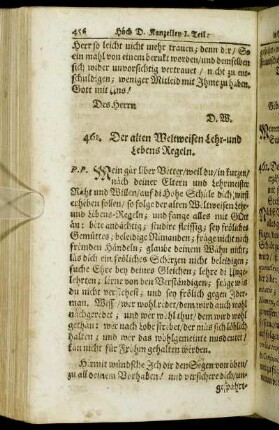 456 Höch D. Kanzelley I. Teil:
Herr so leicht nicht mehr trauen; denn der / So
ein mahl von einem berukt worden / und demselben
sich wider unvorsichtig vertrauet / nicht zu ent-
schuldigen; weniger Mitleid mit Ihme zu haben.
Gott mit Uns!
Des Herrn
D. W.
461. Der alten Weltweisen Lehr-und
Lebens Regeln.
P. P. Mein gar liber Vetter / weil du / in kurzen /
nach deiner Eltern und Lehrmeister
Raht und Willen / auf di Hohe Schule dich
erheben sollen / so folge der alten Weltweisen Lehr-
und Lebens-Regeln; und fange alles mit GOtt
an: bete andächtig; studire fleissig; sey fröliches
Gemüttes; beleidige Nimanden; frage nicht nach
fremden Händeln; glaube deinem Wahn nicht;
lis dich ein fröliches Scherzen nicht beleidigen;
suche Ehre bey deines Gleichen; lehre di Unge-
lehrten; lerne von den Verständigen; frage wis
du nicht verstehest; und sey frölich gegen Jeder-
man. Wiss / wer wohl redet / dem wird auch wohl
nachgeredet; und wer wohl thut / dem wird wohl
gethan: wer nach Lobe strebet / der mus sich löblich
halten; und wer das wohlgemeinte misdeutet /
kan nicht für Fromm gehalten werden.
Hirmit wündsche Ich dir den Segen von oben /
zu all deinem Vorhaben! und versichere dich / un-